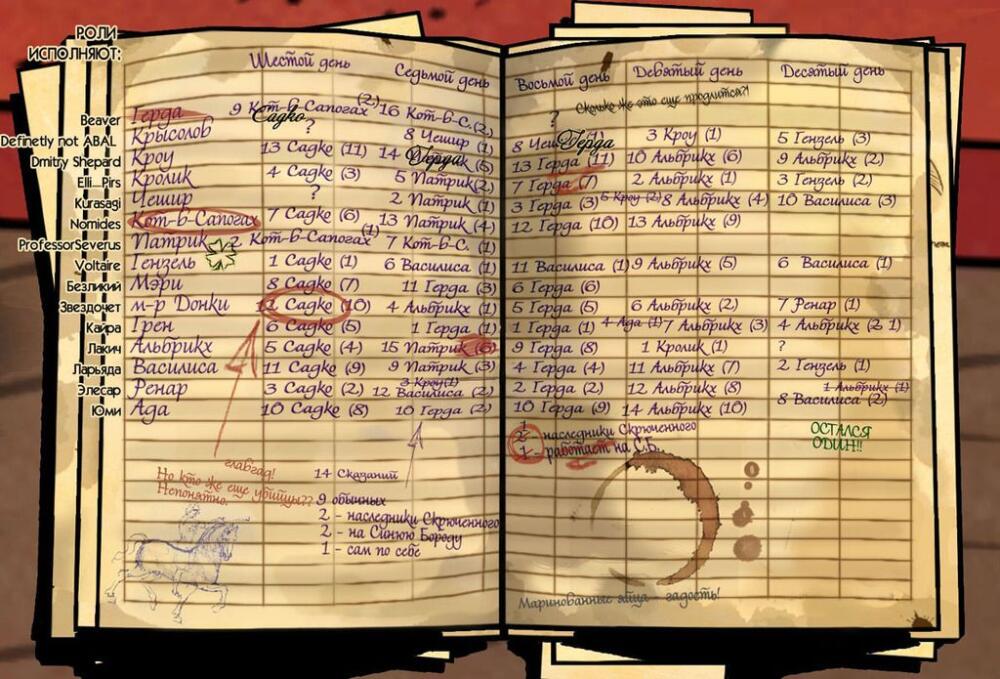 РОЛИ
ИСПОЛНЯЮТ:
Шестой день Седьмой день Восьмой день Девятый день Десятый день
Сколько же это еще продлится?!
Beaver Герда 9 Кот-в-Сапогах (2) Садко 16 Кот-в-С. (2) ?
Definetly not ABAL Крысолов ? 8 Чешир (1) 8 Чеш Герда (1) 3 Кроу (1) 5 Гензель (3)
Dmitry Shepard Кроу 13 Садко (11) 14 Герда (5) 13 Герда (11) 10 Альбрихх (6) 9 Альбрихх (2)
Elli_Pirs Кролик 4 Садко (3) 5 Патрик (2) 7 Герда (7) 2 Альбрихх (1) 3 Гензель (2)
Kurasagi Чешир ? 2 Патрик (1) 3 Герда (3) 5 Кроу (2) 8 Альбрихх (4) 10 Василиса (3)
Nomides Кот-в-Сапогах 7 Садко (6) 13 Патрик (4) 12 Герда (10) 13 Альбрихх (9)
ProfessorSeverus Патрик 2 Кот-в-Сапогах (1) 7 Кот-в-С. (1)
Voltaire Гензель 1 Садко (1) 6 Василиса (1) 11 Василиса (1) 9 Альбрихх (5) 6 Василиса (1)
Безликий Мэри 8 Садко (7) 11 Герда (3) 6 Герда (6)
Звездочет м-р Донки 12 Садко (10) 4 Альбрихх (1) 5 Герда (5) 6 Альбрихх (2) 7 Ренар (1)
Кайра Грен 6 Садко (5) 1 Герда (1) 1 Герда (1) 4 Ада (1) 7 Альбрихх (3) 4 Альбрихх (2 1)
Лакич Альбрихх 5 Садко (4) 15 Патрик (6) 9 Герда (8) 1 Кролик (1) ?
Ларьяда Василиса 11 Садко (9) 9 Патрик (3) 4 Герда (4) 11 Альбрихх (7) 2 Гензель (1)
3 Кроу (1) 1 Альбрихх (1)
Элесар Ренар 3 Садко (2) 12 Василиса (2) 2 Герда (2) 12 Альбрихх (8) 8 Василиса (2)
Юми Ада 10 Садко (8) 10 Герда (2) 10 Герда (9) 14 Альбрихх (10)
1
2 - наследники Скрюченного
1 - работает на С.Б.
ОСТАЛСЯ
ОДИН!!
главгад!
Но кто же еще убийцы??
Непонятно.
14 Сказаний
9 обычных
2 - наследники Скрюченного
2 - на Синюю Бороду
1 - сам по себе
Маринованные яйца - гадость!